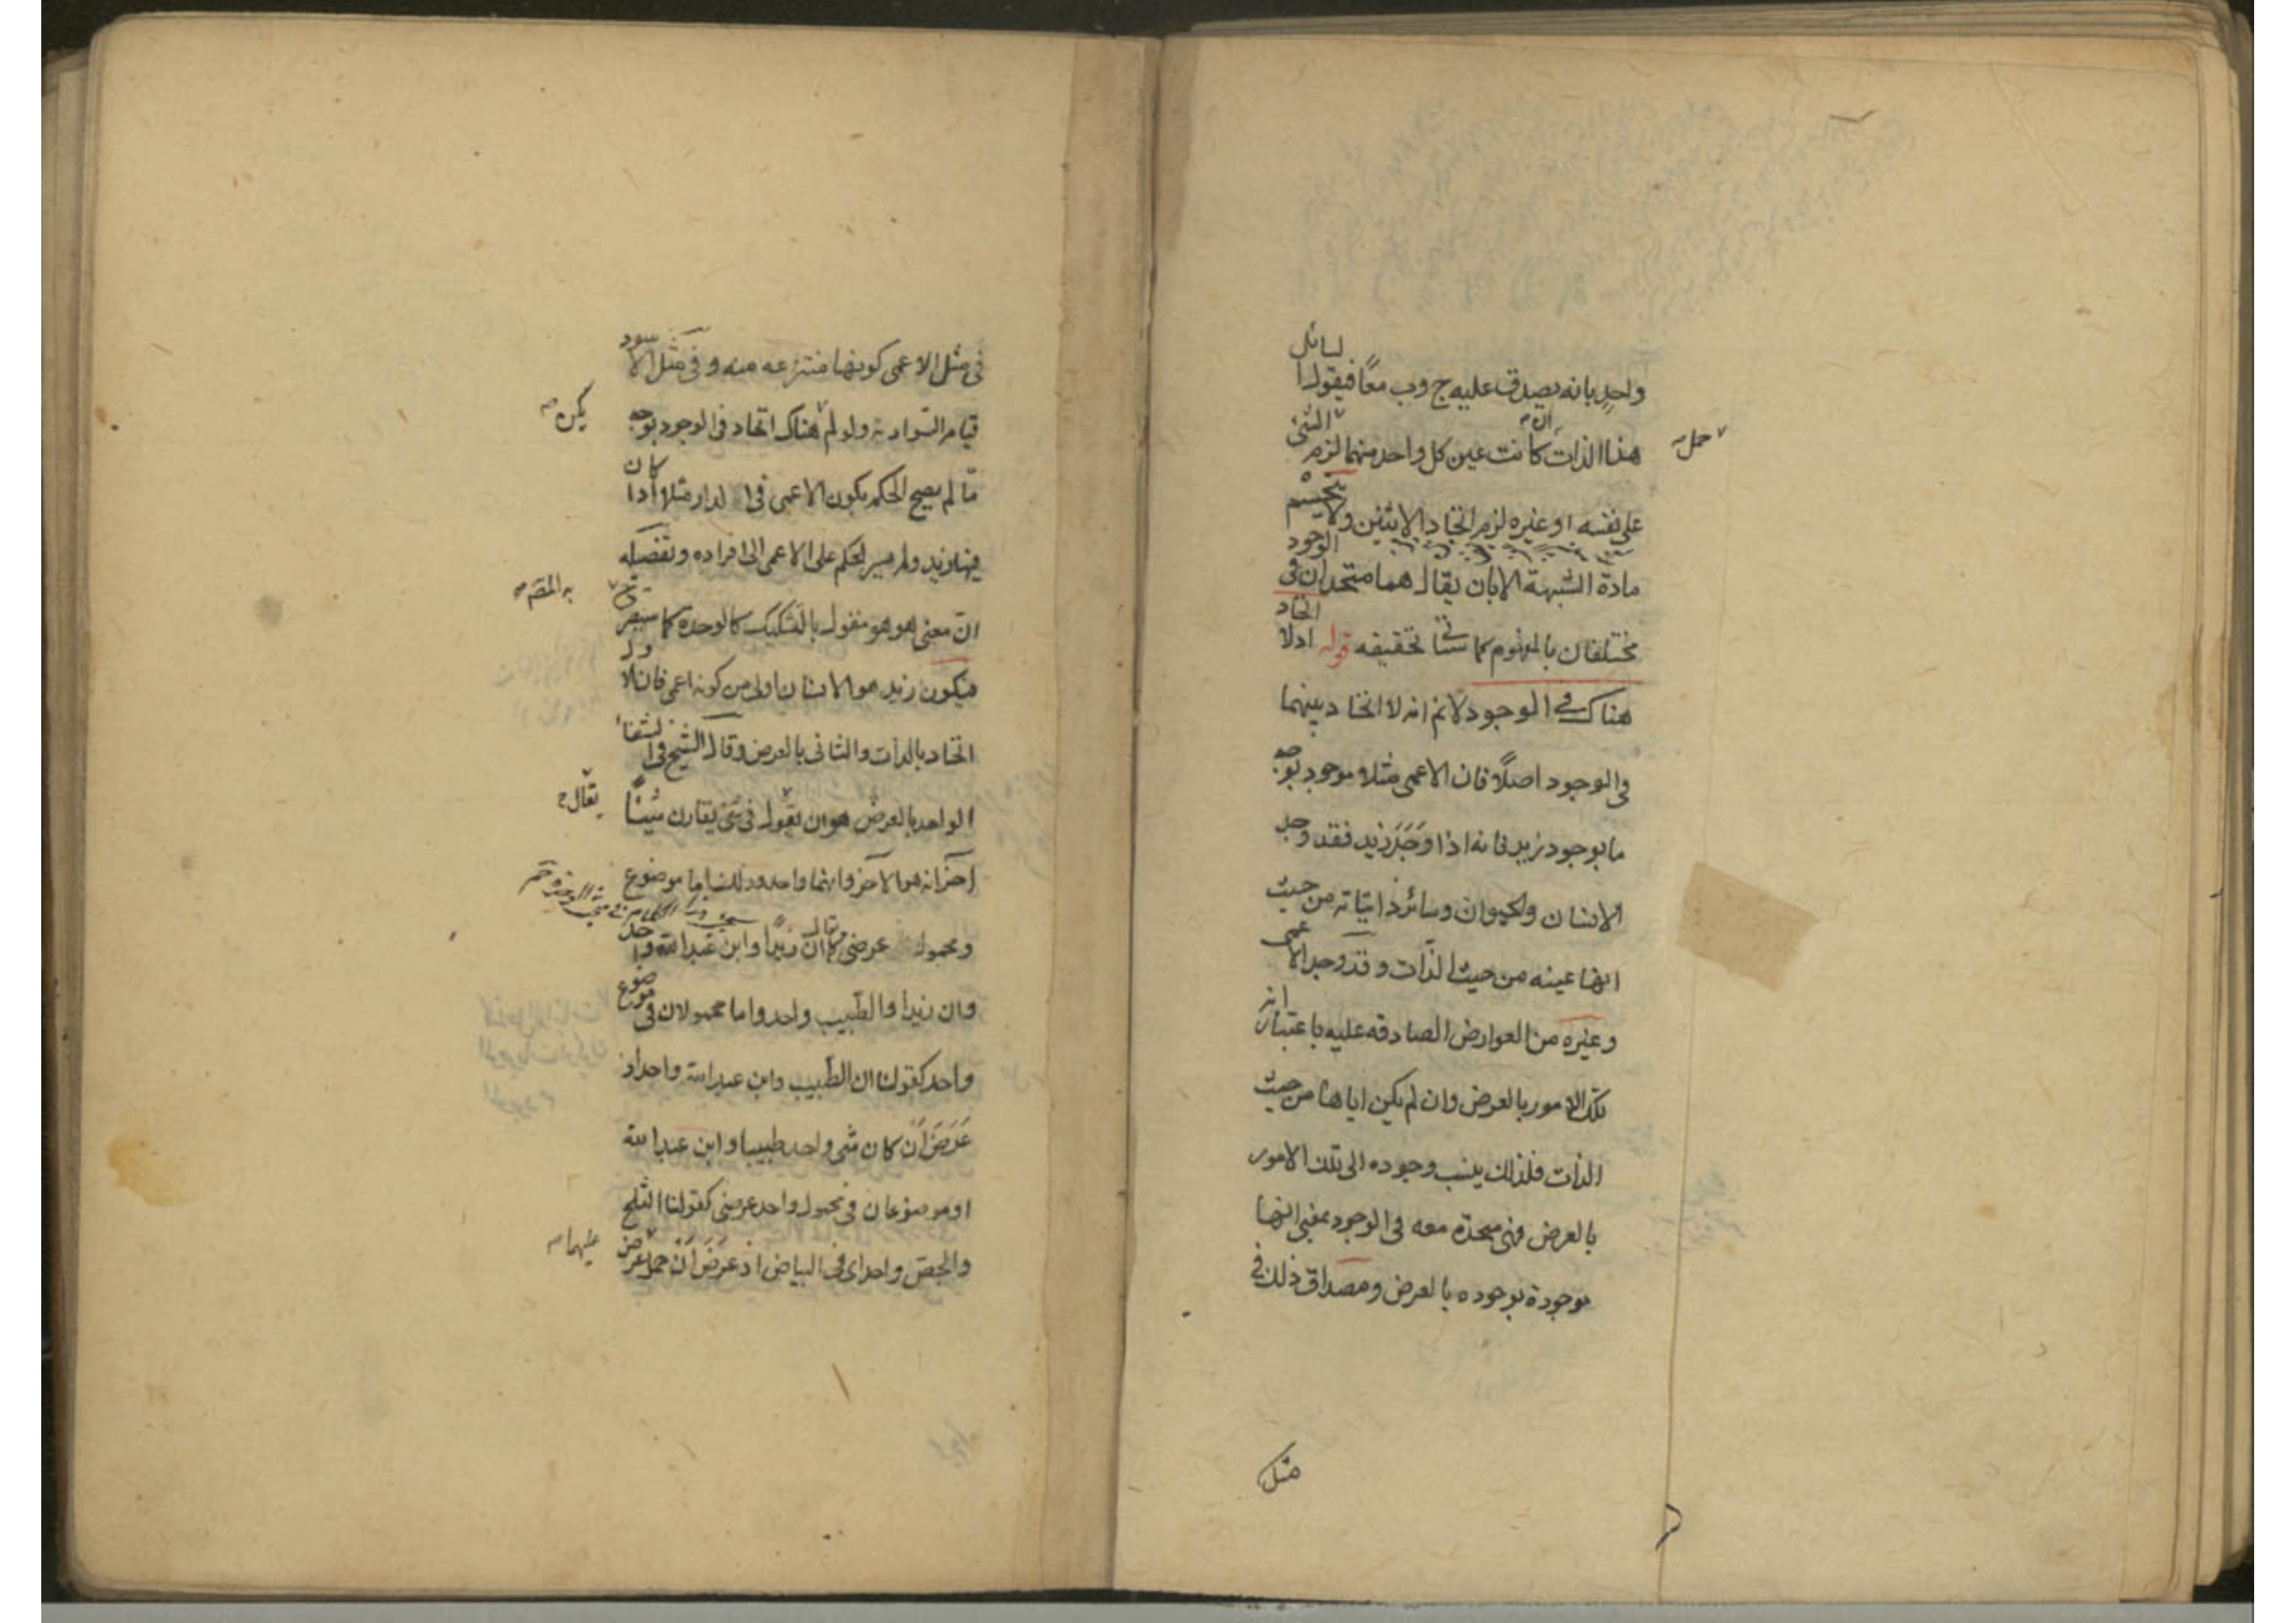 واحد بانه يصدق عليه ج وب معًا فيقول السائل
هذا الذات ان كانت عين كل واحد منهما لزم حمل الشئ
على نفسه او غيره لزم اتحاد الاثنين ولا ينحسم
مادة الشبهة الا بان يقال هما متحدان فى الوجود
مختلفان بالمفهوم كما سياتى تحقيقه قوله اذ لا اتحاد
هناك فى الوجود لانم انه لا اتحاد بينهما
فى الوجود اصلًا فان الاعمى مثلا موجود بوجه
ما بوجود زيد فانه اذا وَجَدَ زيد فقد وجد
الانسان والحيوان وسائر ذاتياته من حيث
انها عينه من حيث الذات و قد وجد الاعمى
وغيره من العوارض الصادقه عليه باعتبار انه
تلك الامور بالعرض وان لم يكن اياها من حيث
الذات فلذلك ينسب وجوده الى تلك الامور
بالعرض فهى متحدة معه فى الوجود بمعنى انها
موجودة بوجوده بالعرض ومصداق ذلك فى
مثل
فى مثل الاعمى كونها منتزعه منه و فى مثل الاسود
قيام السواد به ولو لم يكن هناك اتحاد فى الوجود بوجه
مّا لم يصح الحكم بكون الاعمى فى الدار مثلا اذا كان
فيها زيد ولم يسر الحكم على الاعمى الى افراده وتفصيله
ان معنى هو هو مقول بالتشكيك كالوحدة كما سيصرح به المصـ
فيكون زيد هو الانسان اولى من كونه اعمى فان الاول
اتحاد بالذات والثانى بالعرض وقال الشيخ فى الشفا
الواحد بالعرض هو ان يقال فى شئ يقارن شيئًا
آخر انه هو الآخر وانهما واحد وذلك اما موضوع
ومحمول عرضى كما يقال ان زيدا وابن عبد الله واحد
وان زيدا والطبيب واحد واما محمولان فى موضوع
واحد كقولنا ان الطبيب وابن عبد الله واحد اذ
عَرَضَ أن كان شى واحد طبيبا وابن عبد الله
او موضوعان فى محمول واحد عرضى كقولنا الثلج
والجص واحد اى فى البياض اذ عَرَضَ أنْ حمل عليهما عرض